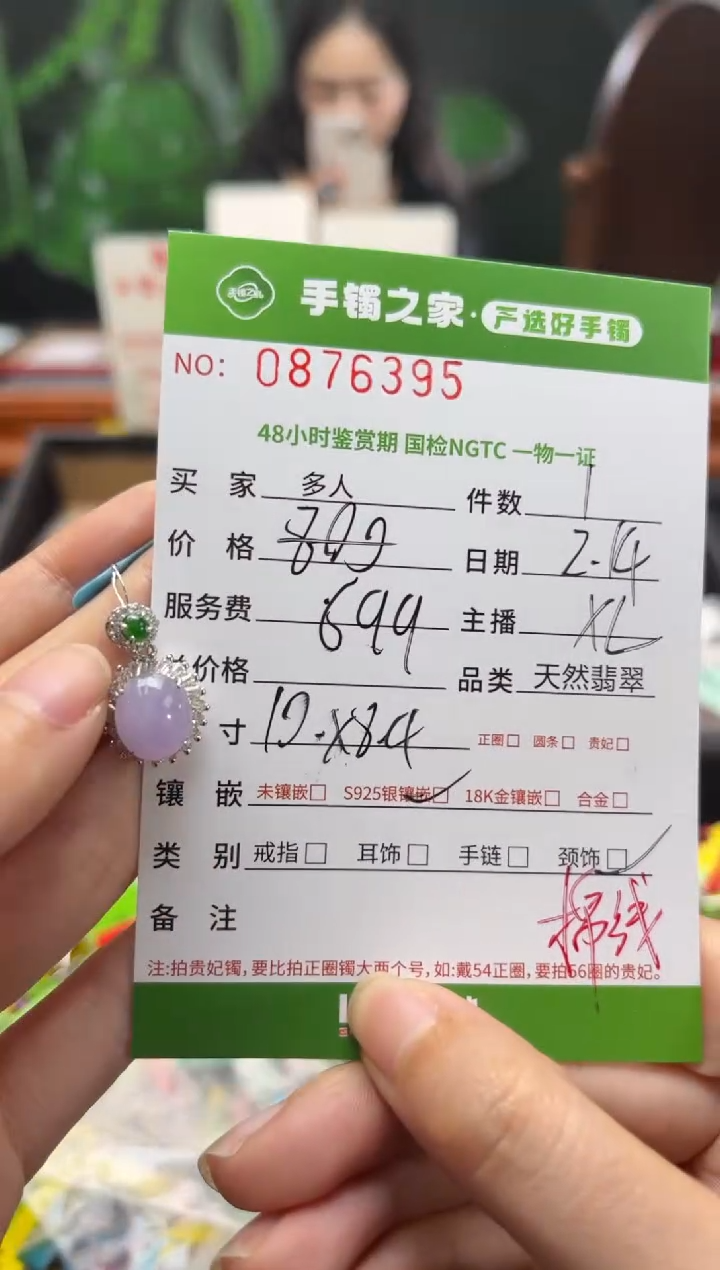 手镯之家·严选好手镯
NO: 0876395
48小时鉴赏期 国检NGTC 一物一证
买 家 多人 件数 1
价 格 899 日期 2.14
服务费 699 主播 XL
价格 品类 天然翡翠
寸 正圈□ 圆条□ 贵妃□
镶 嵌 未镶嵌□ S925银镶嵌□ 18K金镶嵌□ 合金□
类 别 戒指□ 耳饰□ 手链□ 颈饰□
备 注
注:拍贵妃镯,要比拍正圈镯大两个号,如:戴54正圈,要拍56圈的贵妃。